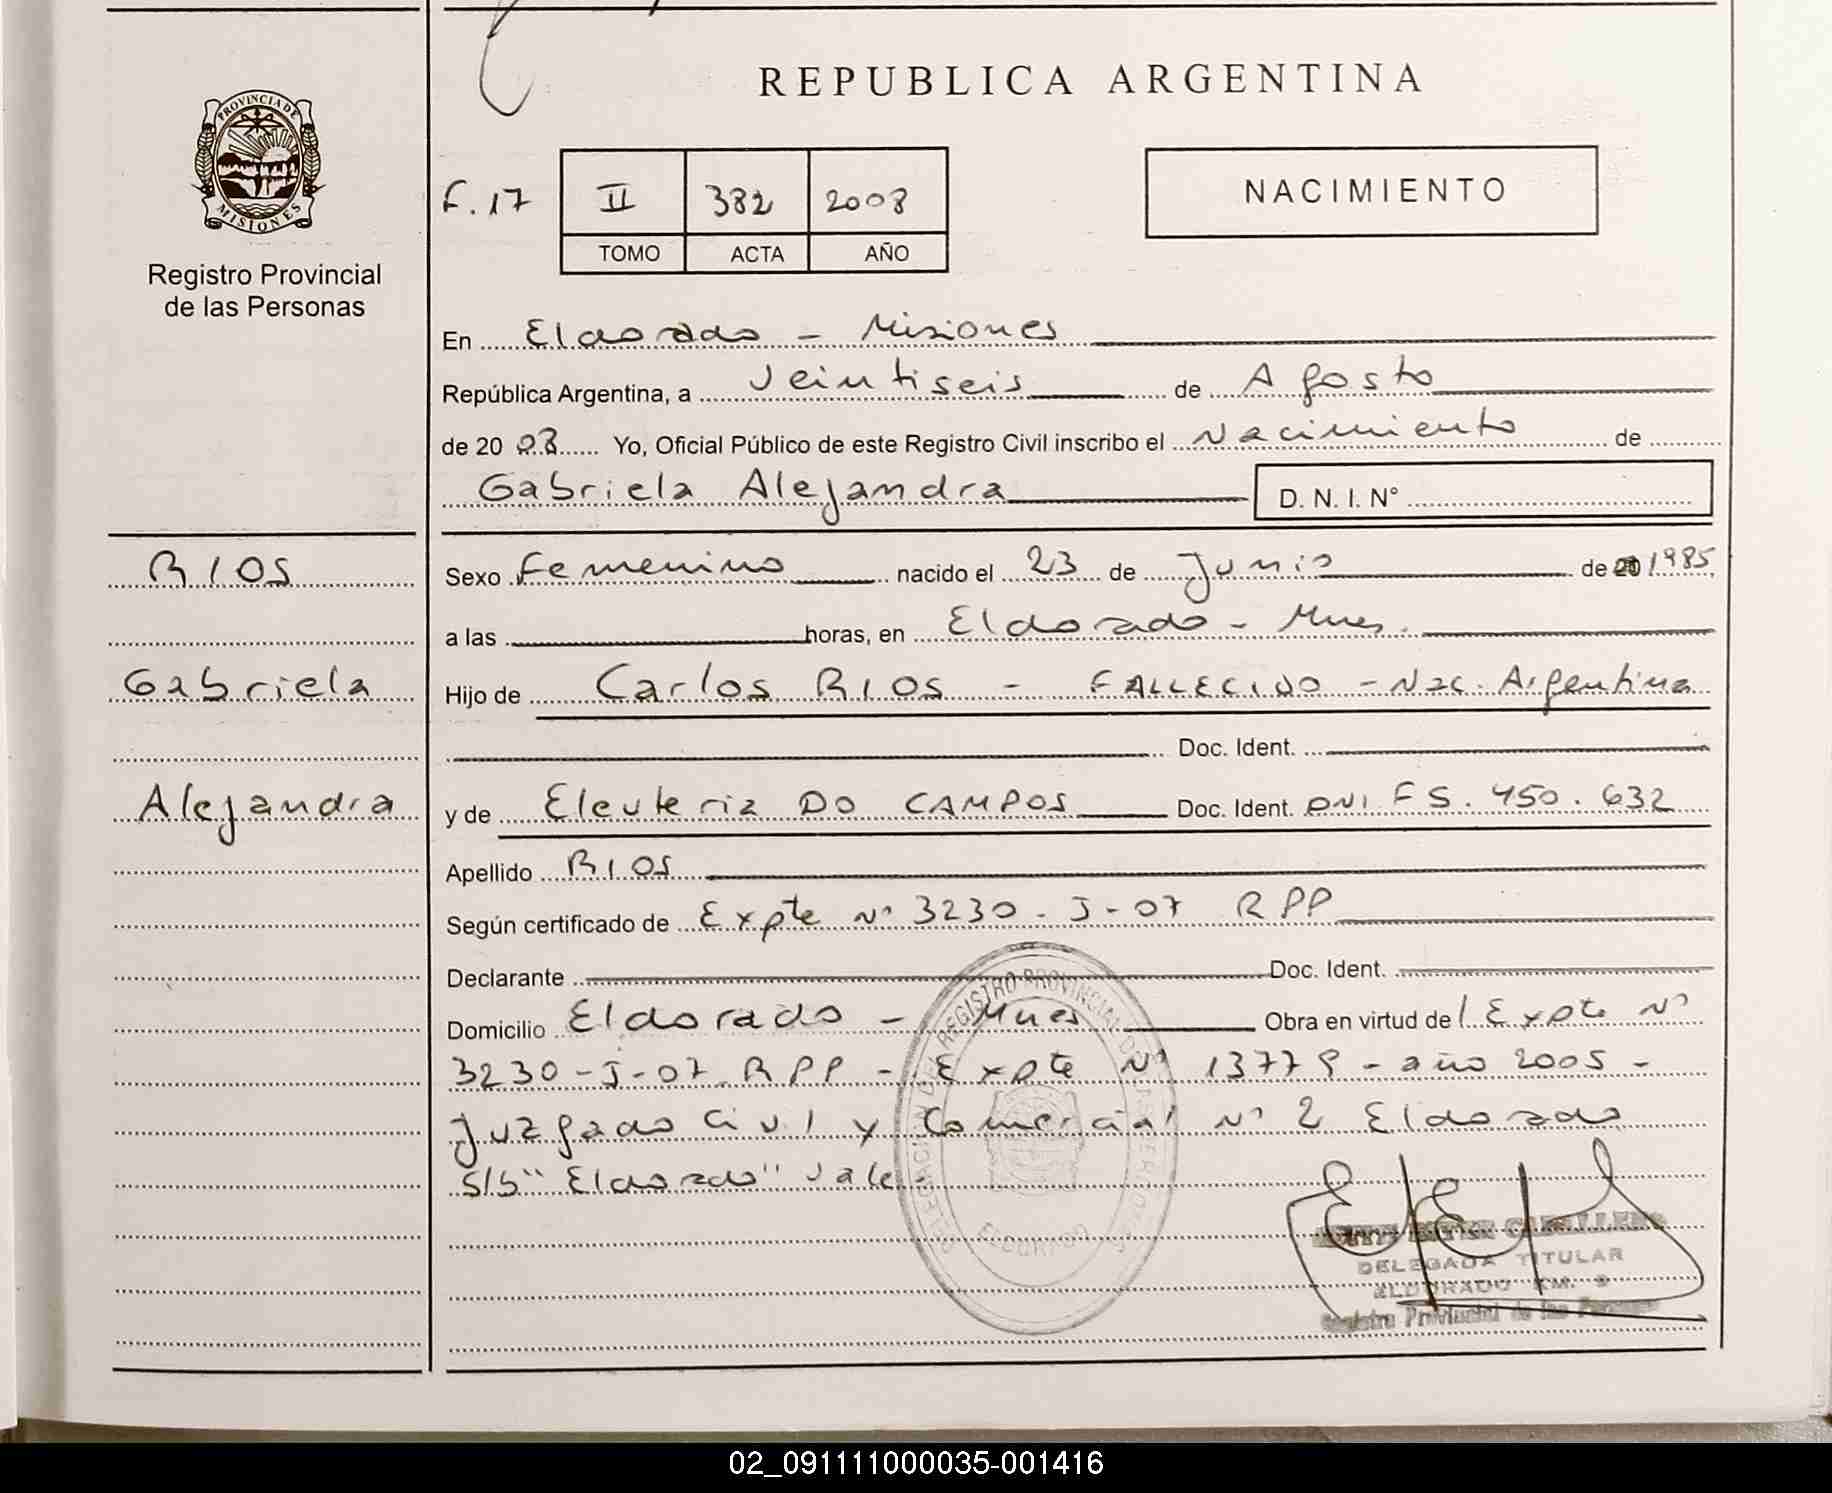 REPUBLICA ARGENTINA
PROVINCIA DE
MISIONES
Registro Provincial
de las Personas
F. 17
II 382 2008
TOMO ACTA AÑO
NACIMIENTO
En Eldorado - Misiones
República Argentina, a Veintiseis de Agosto
de 20 08 Yo, Oficial Público de este Registro Civil inscribo el Nacimiento de
Gabriela Alejandra D. N. I. N°
RIOS
Sexo Femenino nacido el 23 de Junio de 20 1985
a las horas, en Eldorado - Mnes.
Gabriela
Hijo de Carlos RIOS - FALLECIDO - Nac. Argentina
Doc. Ident.
Alejandra
y de Eleuteria DO CAMPOS Doc. Ident. DNI F 5.450.632
Apellido RIOS
Según certificado de Expte N° 3230-J-07 RPP
Declarante Doc. Ident.
Domicilio Eldorado - Mnes Obra en virtud del Expte N°
3230-J-07 RPP - Expte N° 13779 - año 2005 -
Juzgado Civil y Comercial N° 2 Eldorado
S/b "Eldorado" Vale.
REGISTRO PROVINCIAL DE
ELDORADO
CABALLERO
DELEGADA TITULAR
ELDORADO KM. 9
Registro Provincial de las Personas
02_091111000035-001416